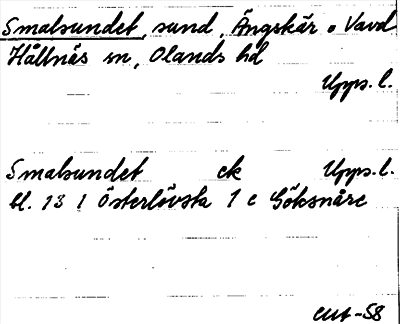 Smalsundet, sund, Ängskär o Vavd
Hållnäs sn, Olands hd
Upps. l.
Smalsundet ek Upps. l.
bl. 13 I Österlövsta 1 e Göksnåre
-58